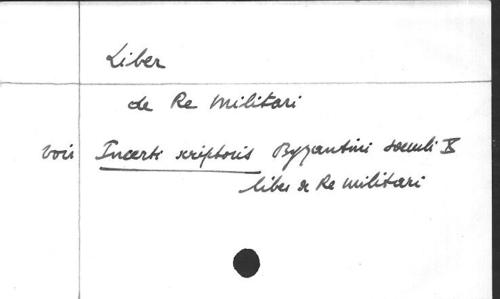 Liber
de Re Militari
voir Incerti scriptoris Byzantini saeculi X
liber de Re militari